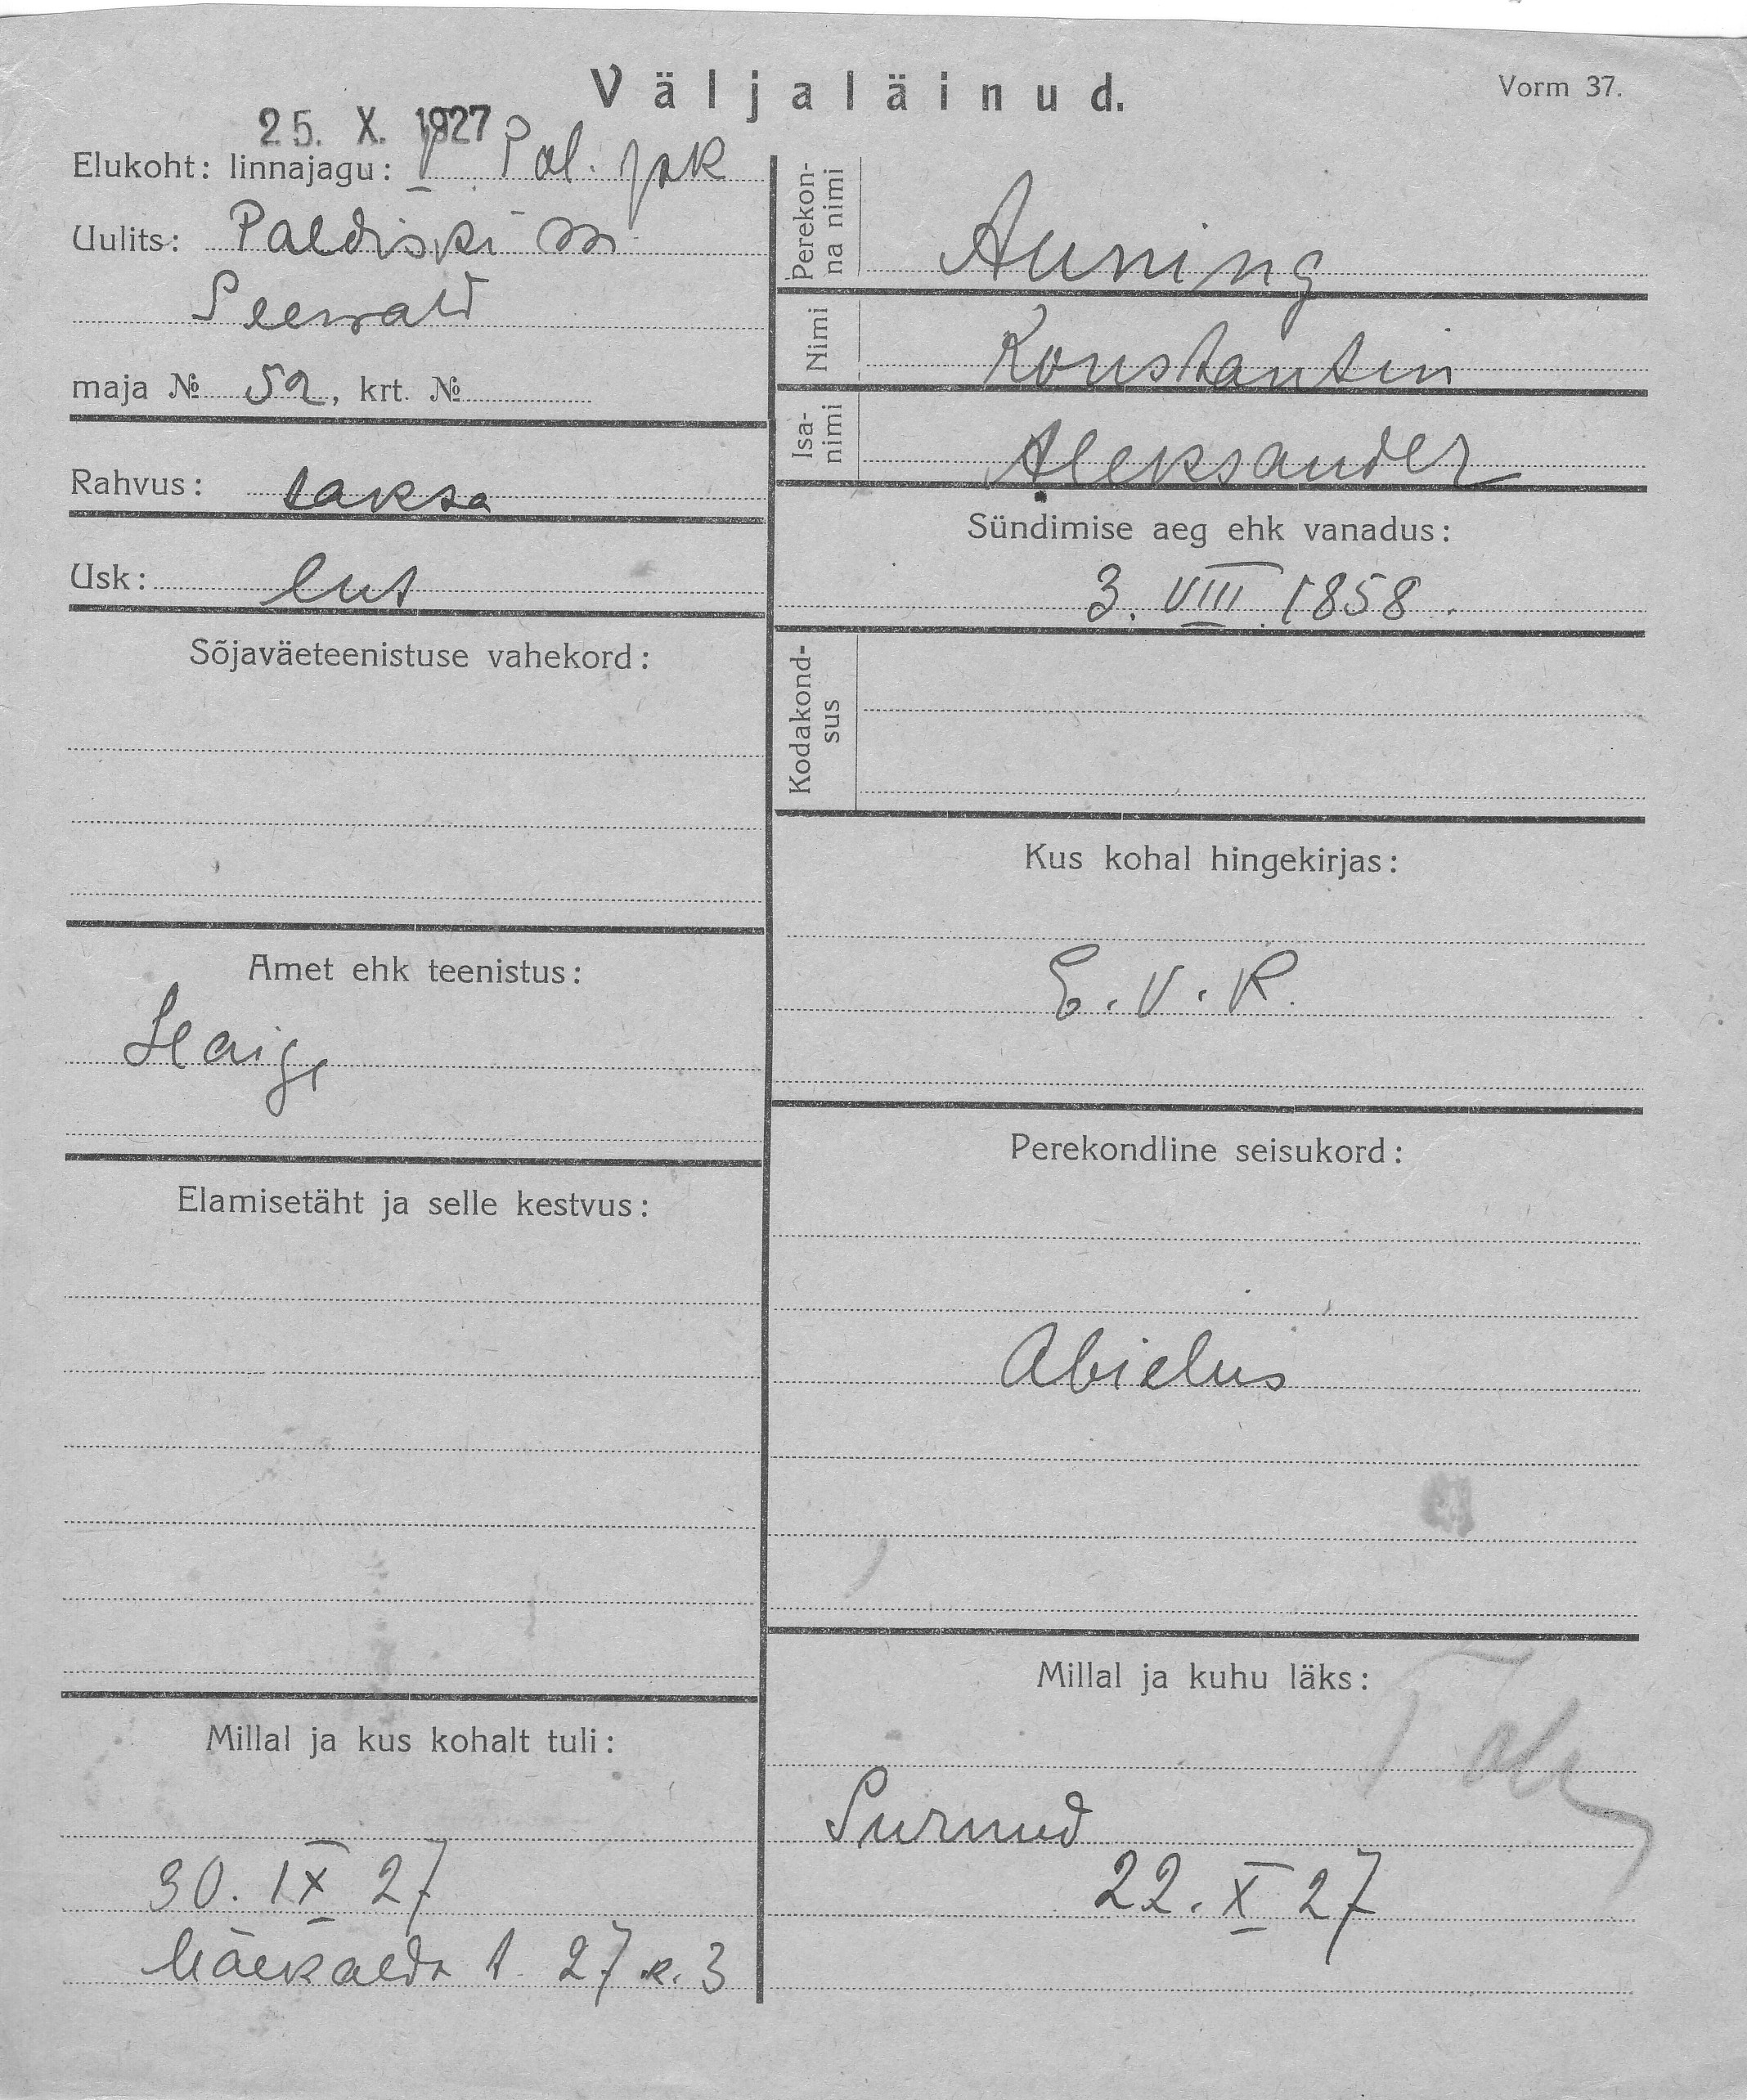 Väljaläinud.
Vorm 37.
25. X. 1927
Elukoht: linnajagu: V Pol. jsk
Uulits: Paldiski m
Seewald
maja № 52, krt. №
Rahvus: saksa
Usk: lut
Sõjaväeteenistuse vahekord:
Amet ehk teenistus:
Haige
Elamisetäht ja selle kestvus:
Millal ja kus kohalt tuli:
30. IX 27
Mäekalda t. 27 k. 3
Perekon-
na nimi
Auning
Nimi Konstantin
Isa-
nimi
Aleksander
Sündimise aeg ehk vanadus:
3. VIII 1858.
Kodakond-
sus
Kus kohal hingekirjas:
E. V. R.
Perekondline seisukord:
Abielus
Millal ja kuhu läks:
Surnud
22. X 27